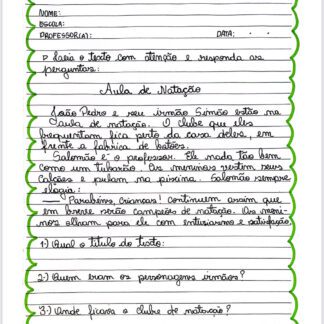 NOME:
ESCOLA:
PROFESSOR(A): DATA: . .
Leia o texto com atenção e responda as
perguntas:
Aula de Natação
João Pedro e seu irmão Simão estão na
aula de natação. O clube que eles
frequentam fica perto da casa deles, em
frente a fábrica de batões.
Salomão é o professor. Ele nada tão bem
como um tubarão. Os meninos vestem seus
calções e pulam na piscina. Salomão sempre
elogia:
— Parabéns, crianças! Continuem assim, que
em breve serão campeões de natação. Os meni-
nos olham para ele com entusiasmo e satisfação.
1-) Qual o título do texto:
2-) Quem eram os personagens irmãos?
3-) Onde ficava o clube de natação?